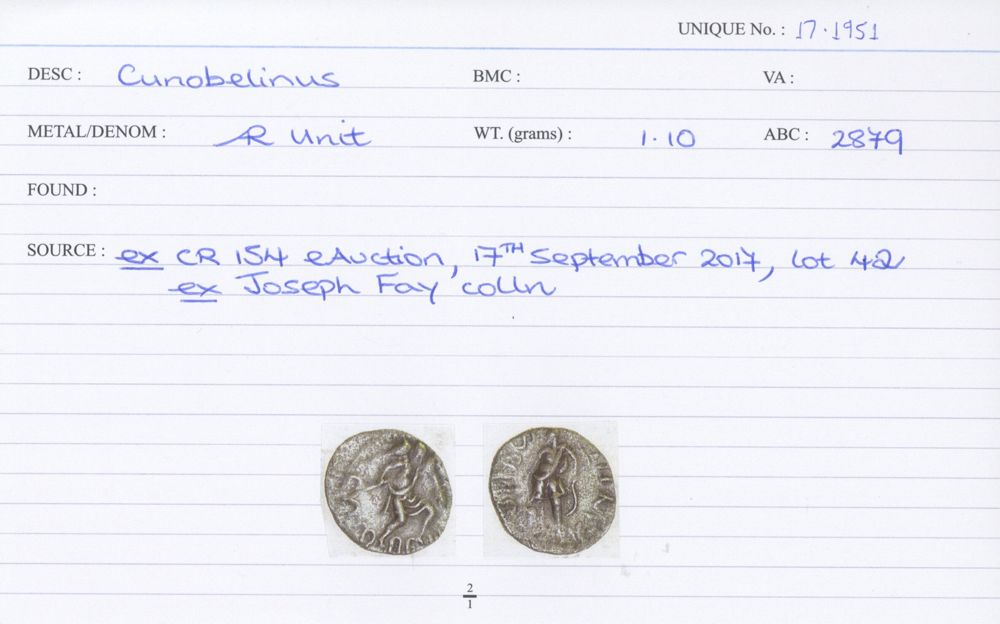 UNIQUE No. : 17.1951
DESC : Cunobelinus BMC : VA :
METAL/DENOM : AR Unit WT. (grams) : 1.10 ABC : 2879
FOUND :
SOURCE : ex CR 154 eAuction, 17TH September 2017, lot 42
ex Joseph Fay colln
2
1